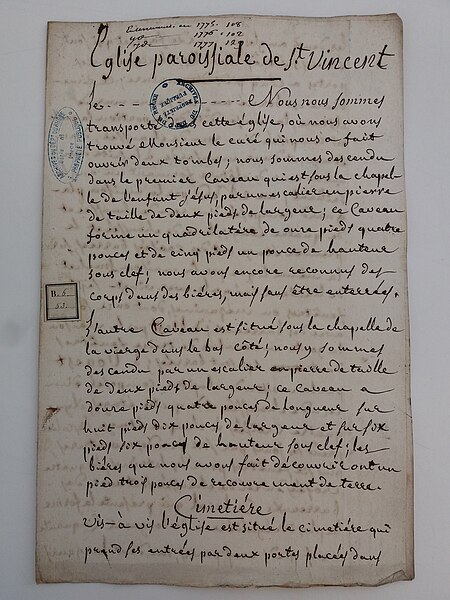 Enterremens. en 1775. 108
1776. 102
1777. 12
Eglise paroissiale de St. Vincent
Le - - - - - - - - - - - Nous nous sommes
transportés dans cette église, où nous avons
trouvé Monsieur le curé qui nous a fait
ouvrir deux tombes; nous sommes descendu
dans le premier Caveau qui est sous la chapel-
le de l'enfant Jésus, par un escalier en pierre
de taille de deux pieds de largeur; ce Caveau
forme un quadrilatére de onze pieds quatre
pouces et de cinq pieds un pouce de hauteur
sous clef; nous avons encore reconnus des
corps dans des biéres, mais sans être enterrées.
B. 6.
53.
L'autre Caveau est situé sous la chapelle de
la vierge dans le bas côté; nous y sommes
descendu par un escalier en pierre de taille
de deux pieds de largeur; ce caveau a
douze pieds quatre pouces de longueur sur
huit pieds dix pouces de largeur et sur six
pieds six pouces de hauteur sous clef; les
biéres que nous avons fait découvrir ont un
pied trois pouces de recouvrement de terre.
Cimetiére
Vis-à vis l'église est situé le cimetiére qui
prend ses entrées par deux portes placées dans